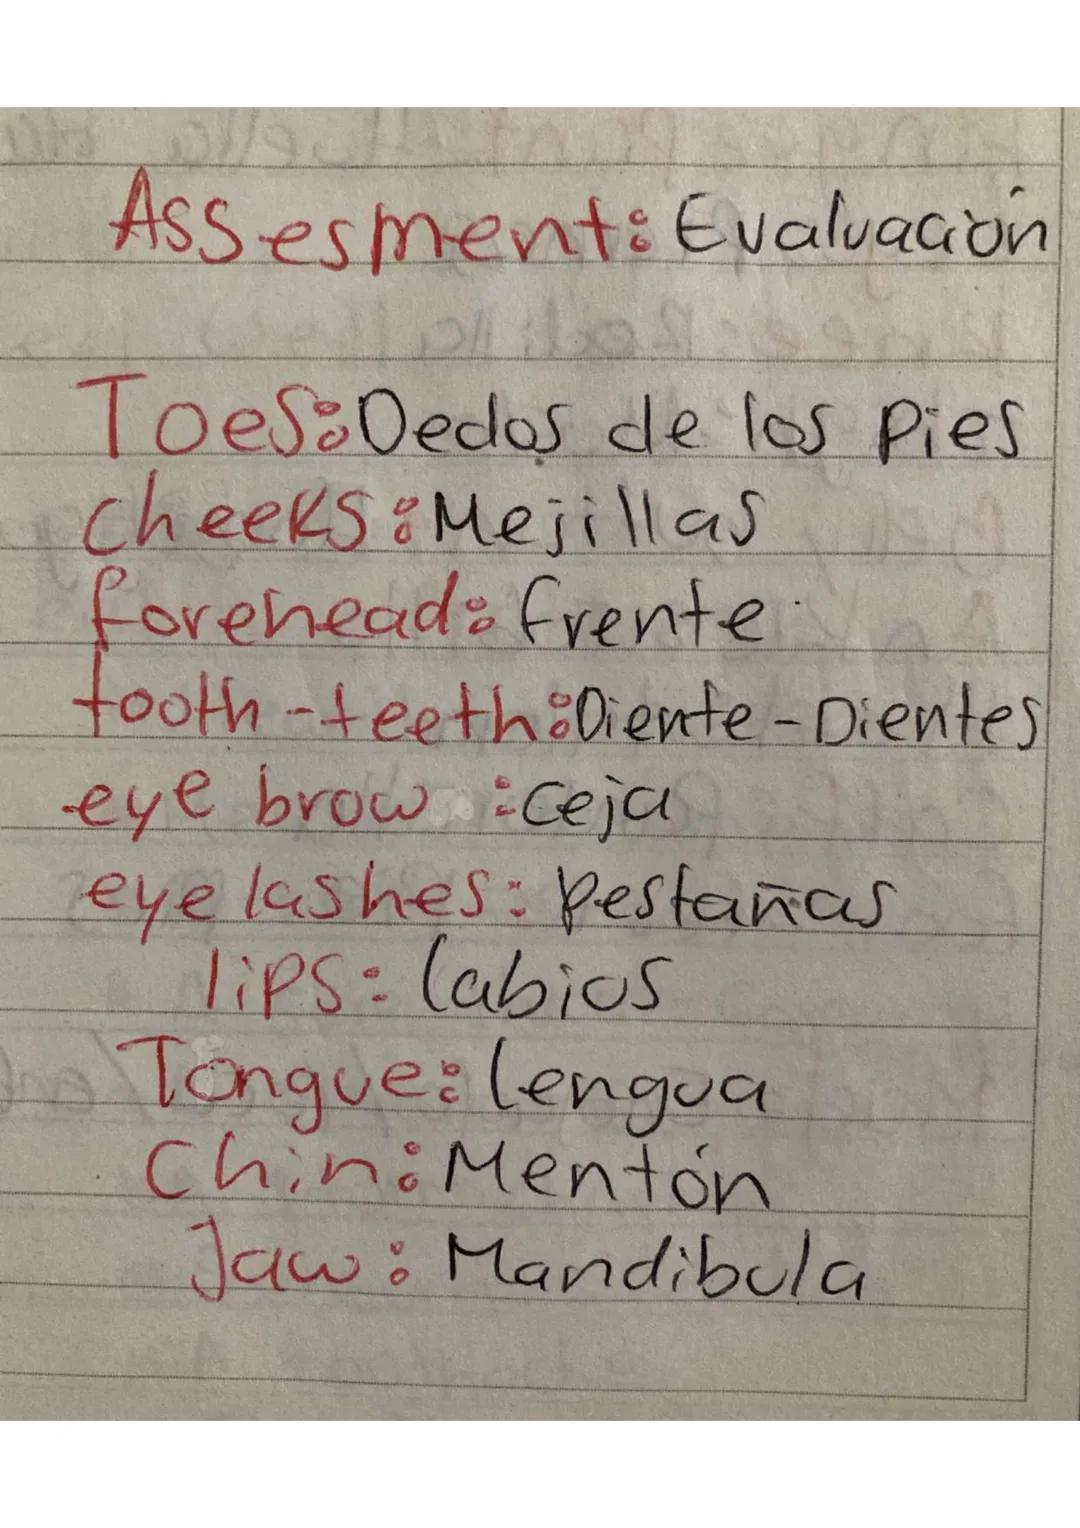 Assesment: Evaluación
Toes: Dedos de los pies
cheeks: Mejillas
forehead: frente
tooth - teeth: Diente - Dientes
eye brow : Ceja
eye lashes: pestañas
lips: labios
Tongue: lengua
Chin: Mentón
Jaw: Mandibula